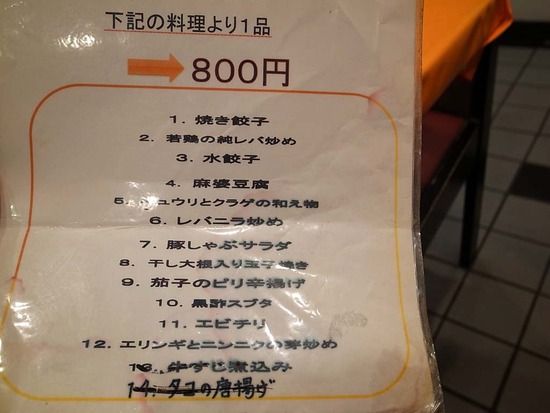 下記の料理より1品
800円
1. 焼き餃子
2. 若鶏の純レバ炒め
3. 水餃子
4. 麻婆豆腐
5. キュウリとクラゲの和え物
6. レバニラ炒め
7. 豚しゃぶサラダ
8. 干し大根入り玉子焼き
9. 茄子のピリ辛揚げ
10. 黒酢スブタ
11. エビチリ
12. エリンギとニンニクの芽炒め
13. 牛すじ煮込み
14. タコの唐揚げ